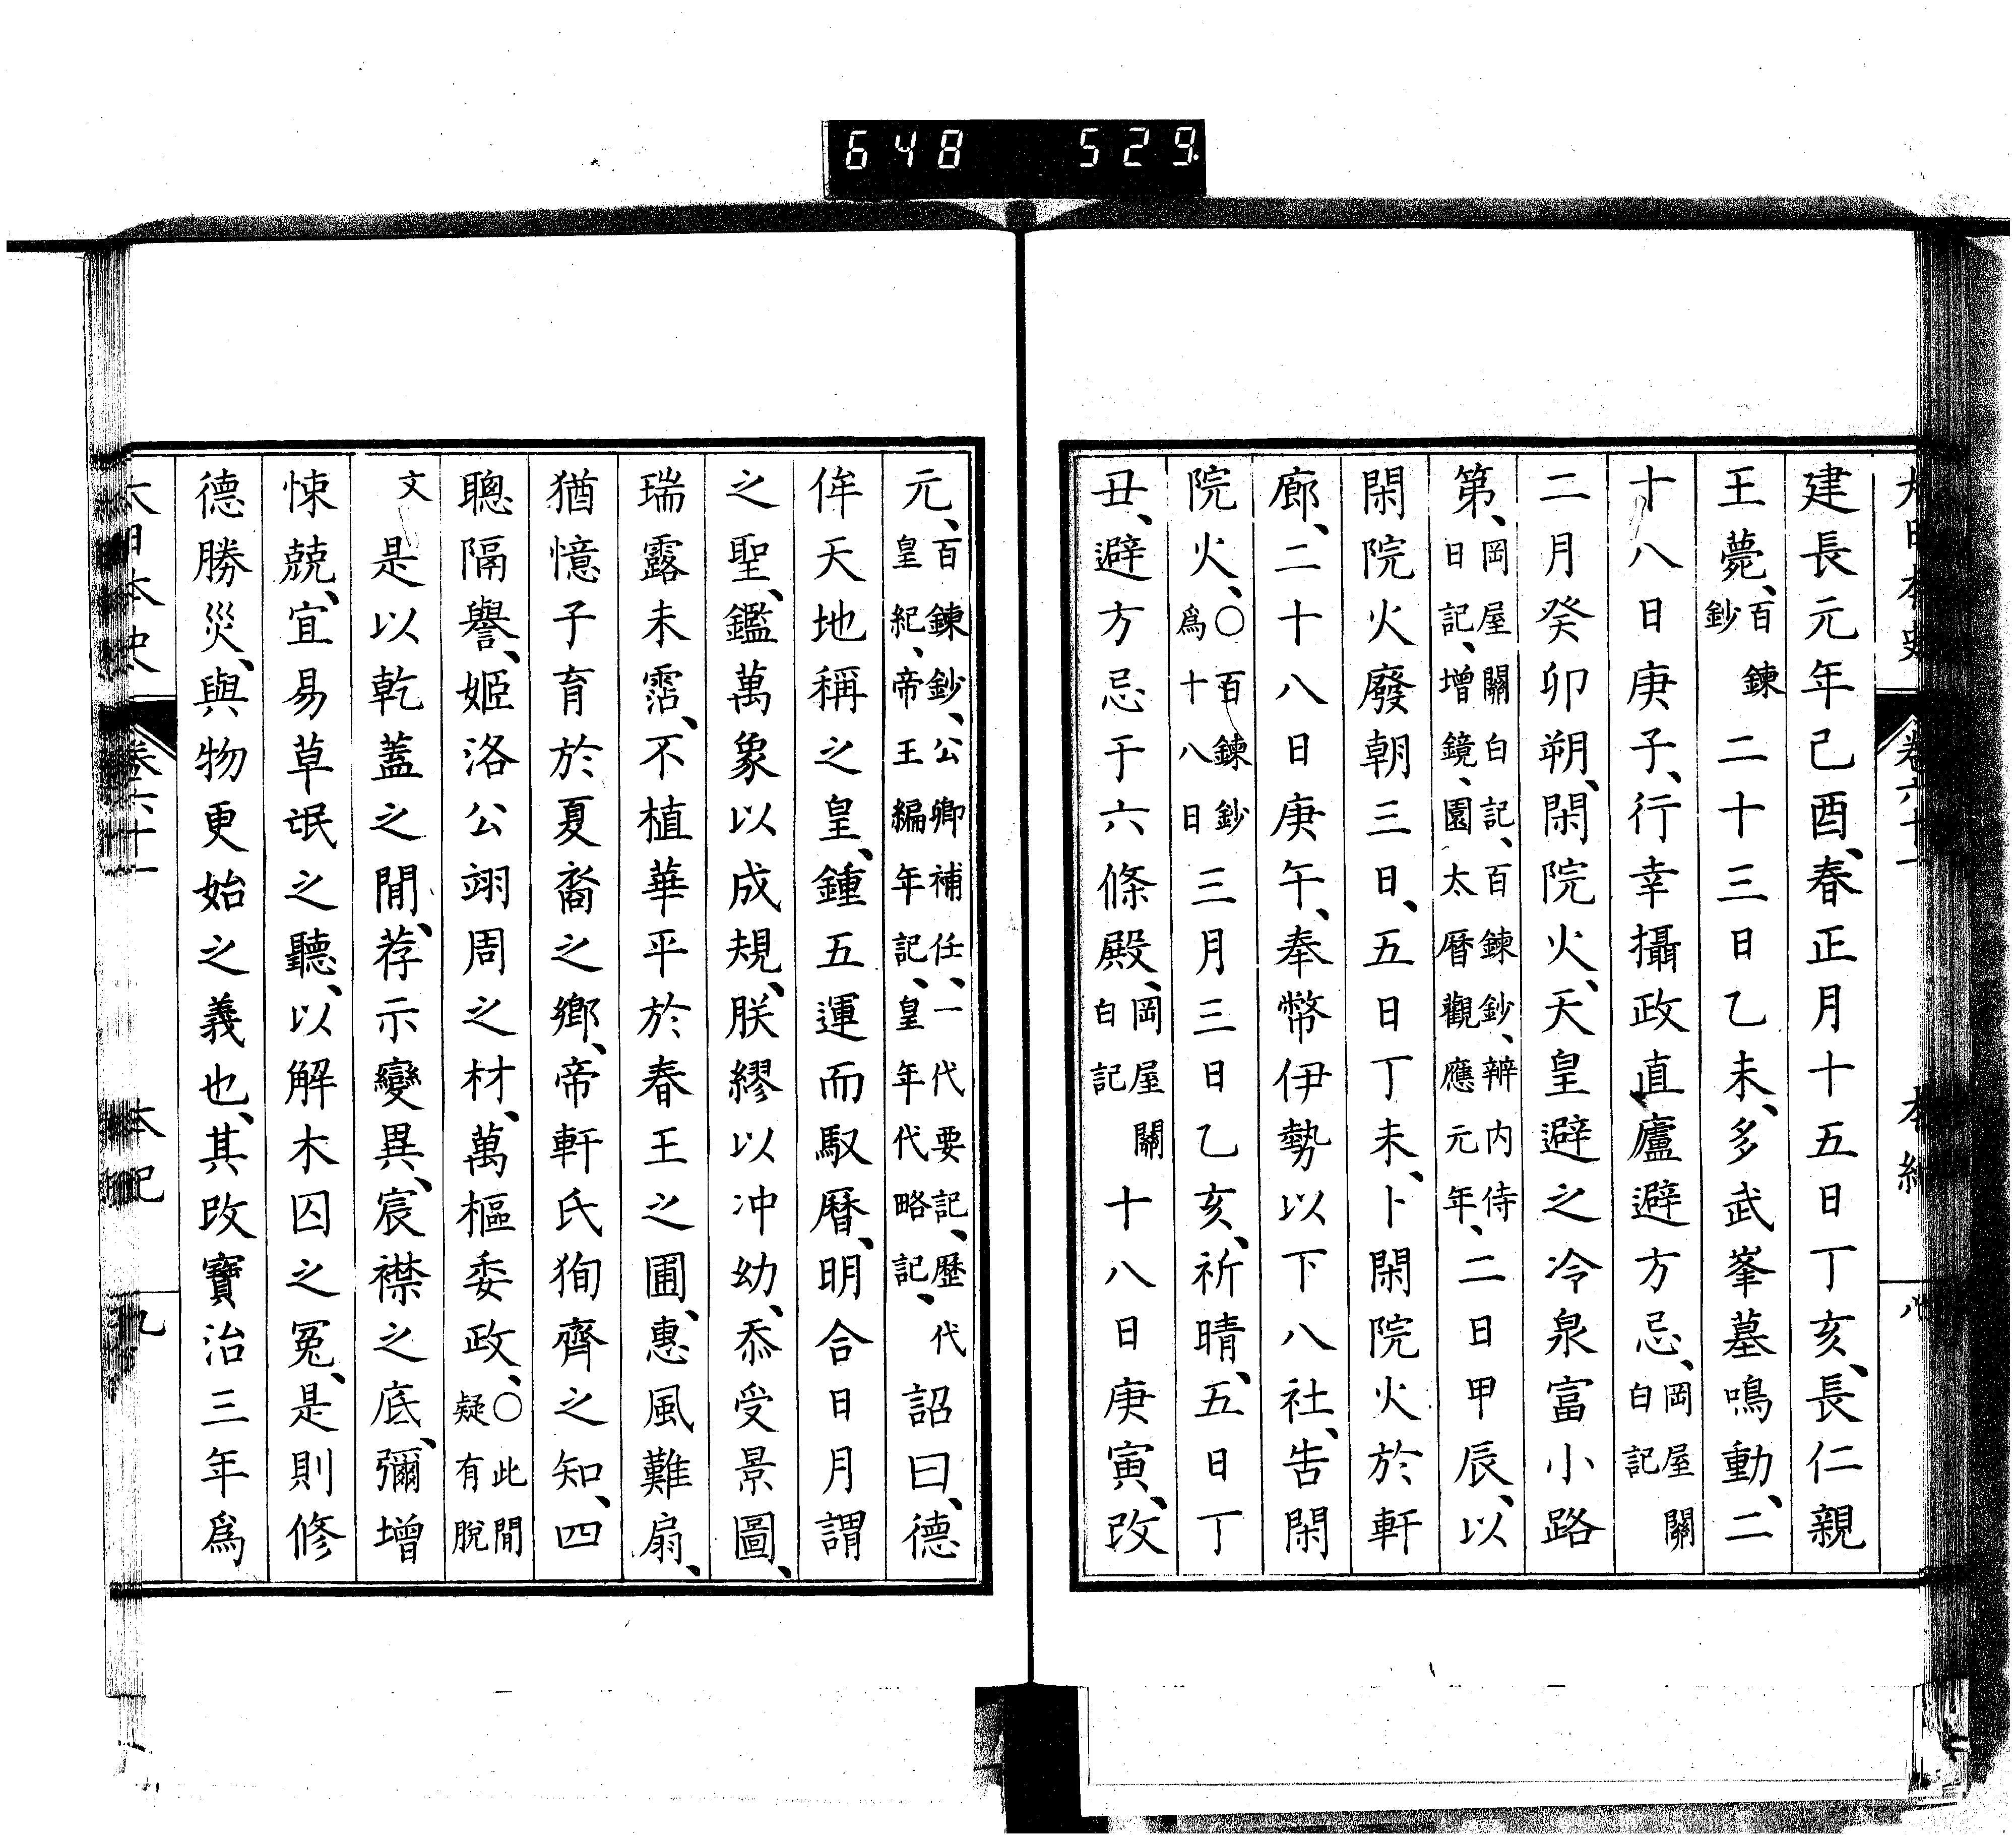 648 529
大日本史 卷六十一 本紀 八
建長元年己酉、春正月十五日丁亥、長仁親
王薨、百鍊鈔 二十三日乙未、多武峯墓鳴動、二
十八日庚子、行幸攝政直廬避方忌、岡屋關白記
二月癸卯朔、閑院火、天皇避之冷泉富小路
第、岡屋關白記、百鍊鈔、辨内侍日記、增鏡、園太曆觀應元年、二日甲辰、以
閑院火廢朝三日、五日丁未、卜閑院火於軒
廊、二十八日庚午、奉幣伊勢以下八社、告閑
院火、〇百鍊鈔爲十八日 三月三日乙亥、祈晴、五日丁
丑、避方忌于六條殿、岡屋關白記 十八日庚寅、改
元、百鍊鈔、公卿補任、一代要記、歷代皇紀、帝王編年記、皇年代略記、 詔曰、德
侔天地稱之皇、鍾五運而馭曆、明合日月謂
之聖、鑑萬象以成規、朕繆以冲幼、忝受景圖、
瑞露未霑、不植華平於春王之圃、惠風難扇、
猶憶子育於夏裔之鄉、帝軒氏徇齊之知、四
聰隔譽、姬洛公翊周之材、萬樞委政、〇此閒疑有脫
文 是以乾蓋之閒、荐示變異、宸襟之底、彌增
悚兢、宜易草氓之聽、以解木囚之冤、是則修
德勝災、與物更始之義也、其改寶治三年爲
大日本史 卷六十一 本紀 九